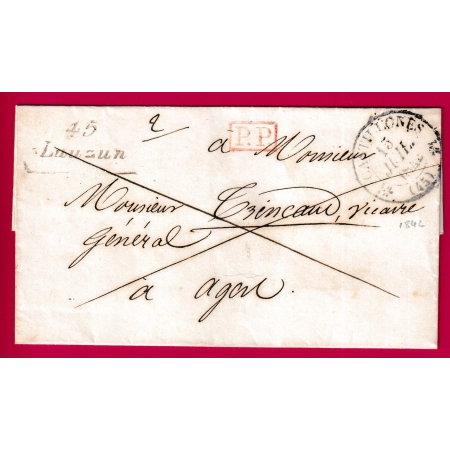 45
Lauzun
2
P.P.
CASTILLONES
13
JUIL.
(45)
à Monsieur
Monsieur Trincaud, vicaire
général
à agen.
1842